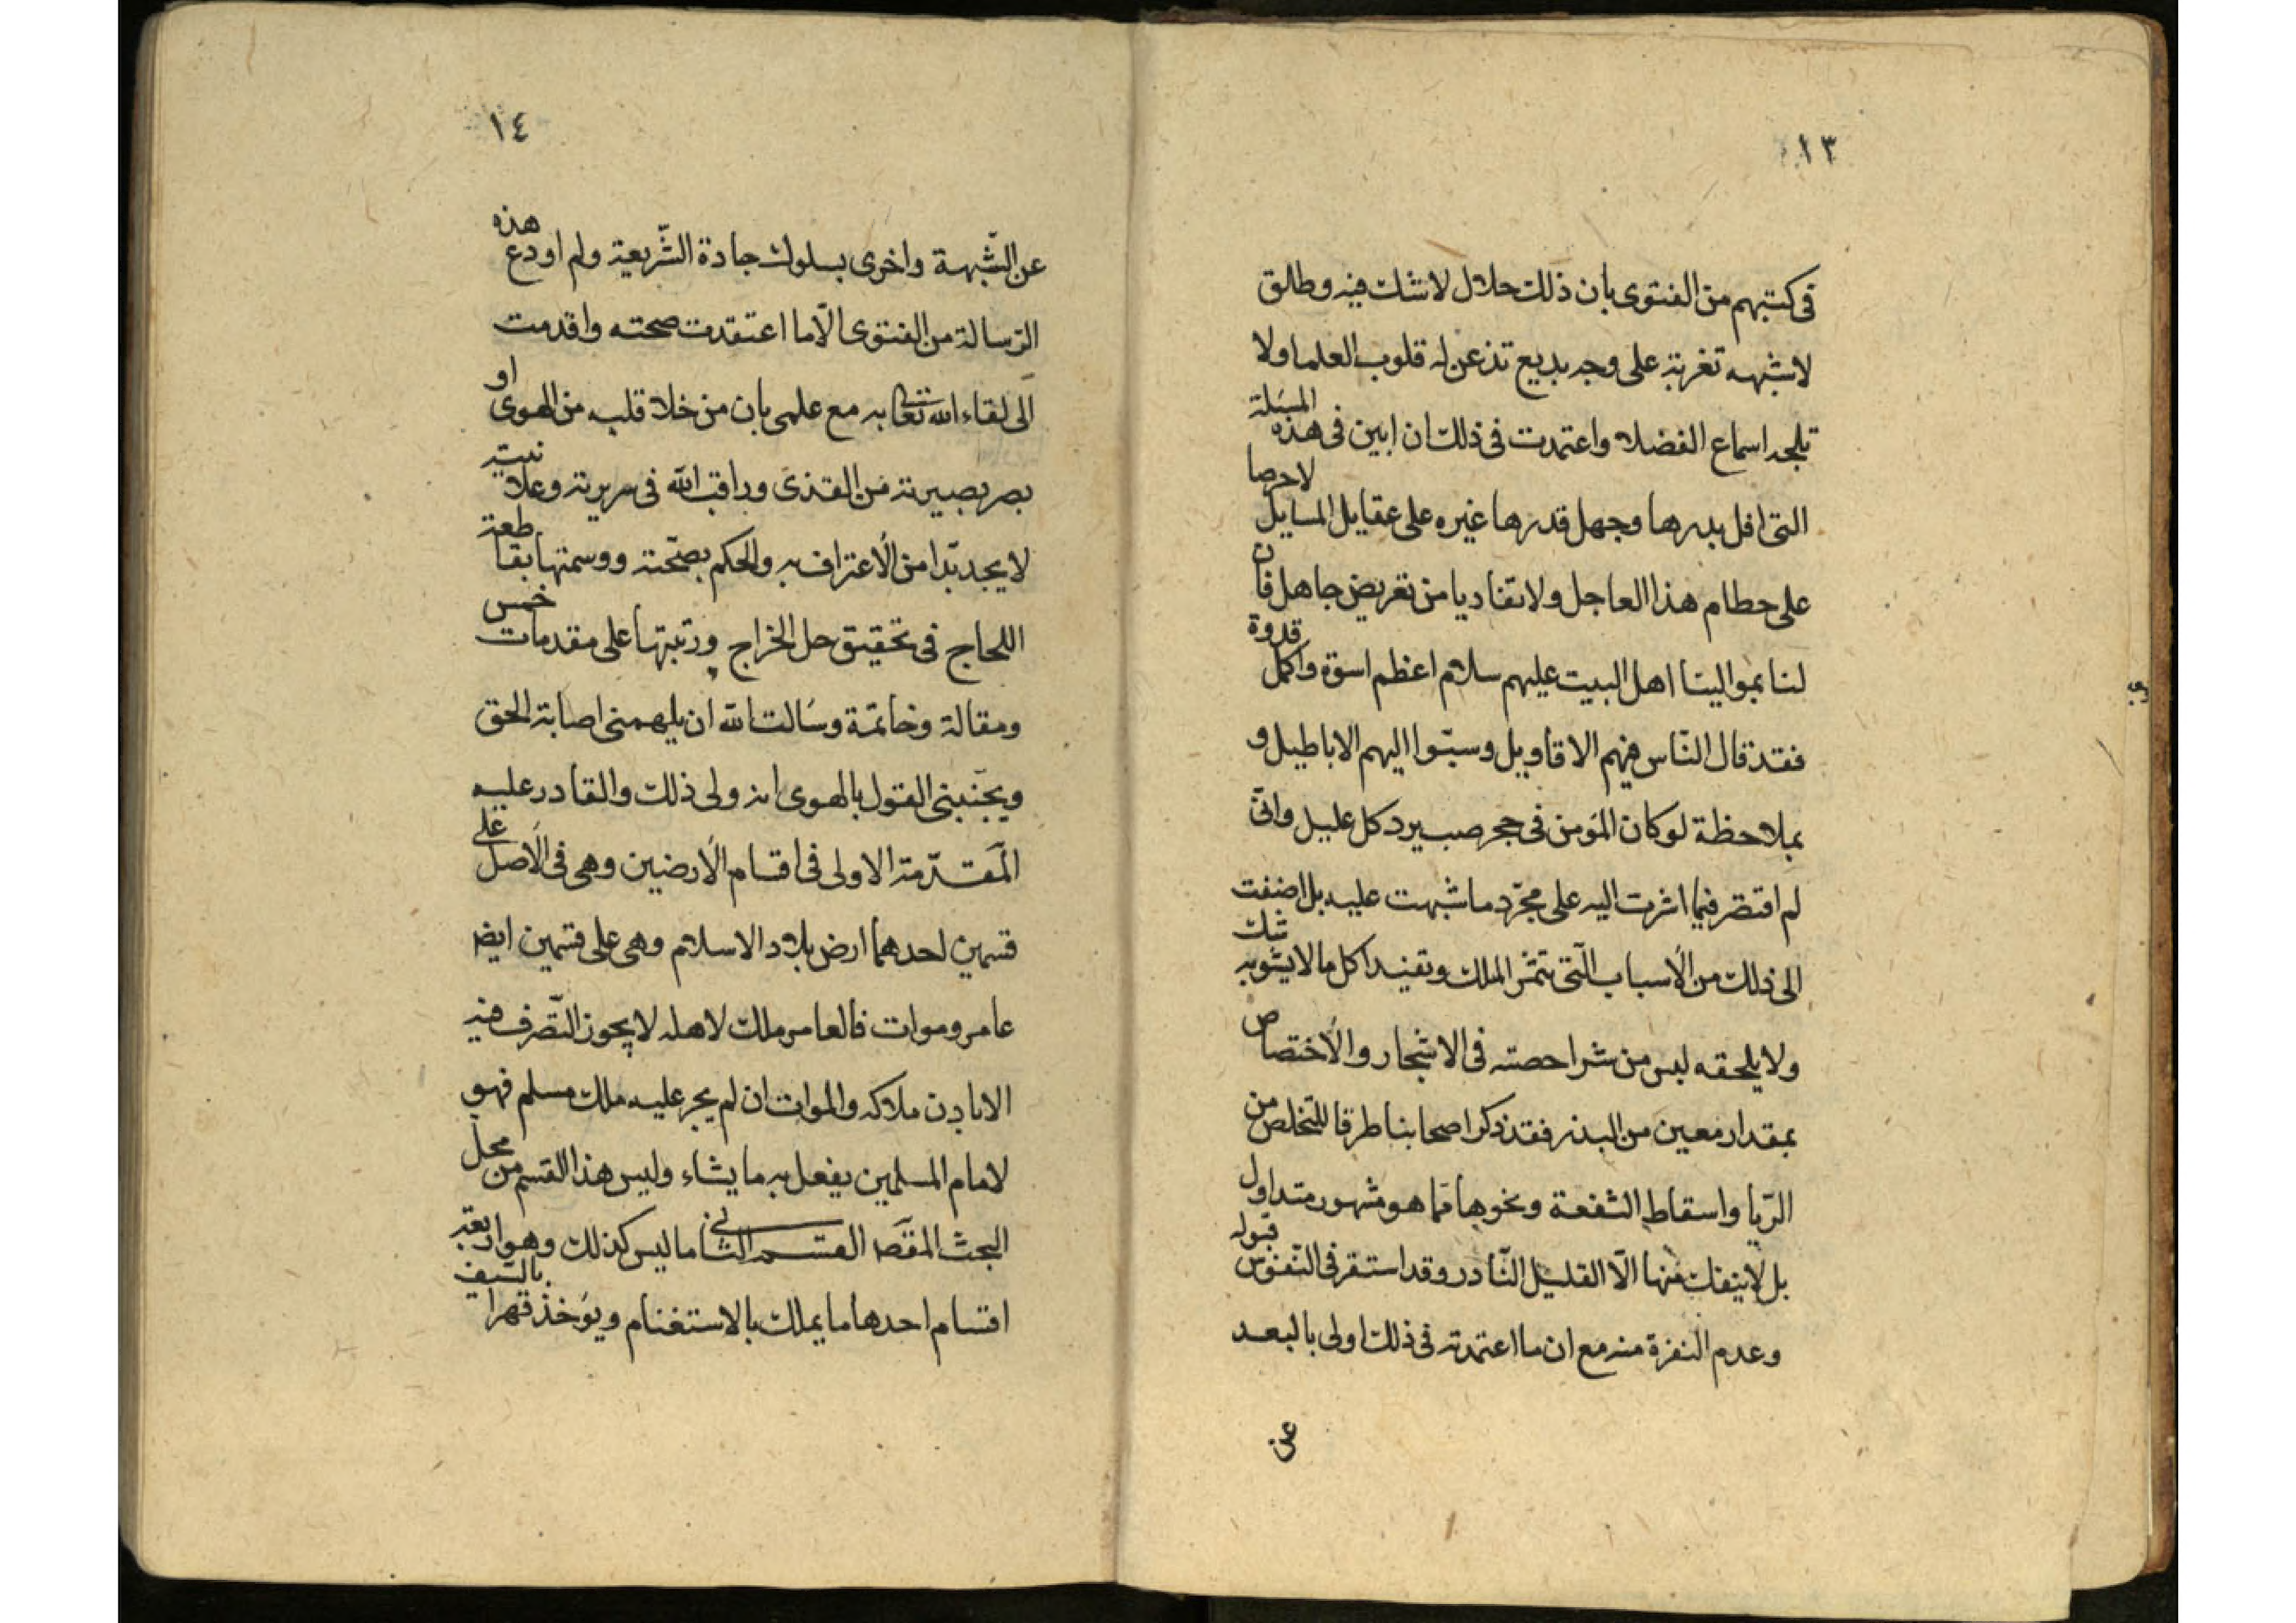 ١٣
في كتبهم من الفتوى بان ذلك حلال لا شك فيه وطلق
لا شبهه تعتريه على وجه بديع تذعن له قلوب العلما ولا
تلجه اسماع الفضلا واعتمدت في ذلك ان ابين في هذه المسئلة
التي افل بدرها وجهل قدرها غيره على عقايل المسايل لا حرصا
على حطام هذا العاجل ولا تفاديا من تعريض جاهل فان
لنا بموالينا اهل البيت عليهم سلام اعظم اسوة واكمل قدوة
فقد قال النّاس فيهم الاقاويل وسبّوا اليهم الاباطيل و
بملاحظة لو كان المؤمن في حجر صب يرد كل عليل وانّي
لم اقتصر فيما اشرت اليه على مجرّد ما شبهت عليه بل اضفت
الى ذلك من الأسباب الّتي تثمر الملك وتفيد اكل ما لا يشوبه شك
ولا يلحقه لبس من شرا حصته في الاشجار والأختصاص
بمقدار معين من البذر فقد ذكر اصحابنا طرقا للتخلص من
الرّبا واسقاط الشفعة ونحوها ممّا هو مشهور متداول
بل لا ينفك منها الّا القليل النّادر وقد استقر في النّفوس قبوله
وعدم النفرة منه مع ان ما اعتمدته في ذلك اولى بالبعد
عن
١٤
عن الشّبهة واخرى بسلوك جادة الشّريعة ولم اودع هذه
الرّسالة من الفتوى الّا ما اعتقدت صحته واقدمت
الى لقاء الله تعالى به مع علمي بان من خلا قلبه من الهوى او
بصر بصيرته من القذى وراقب الله في سريرته وعلانيته
لا يجد بدّا من الأعتراف به والحكم بصحّته ووسمتها بقاطعة
اللجاج في تحقيق حل الخراج ورتبتها على مقدمات خمس
ومقالة وخاتمة وسألت الله ان يلهمني اصابة الحق
ويجنّبني القول بالهوى انه ولي ذلك والقادر عليه
المقدّمة الاولى في اقسام الأرضين وهي في الأصل على
قسمين احدهما ارض بلاد الاسلام وهي على قسمين ايضا
عامر وموات فالعامر ملك لاهله لا يجوز التّصرف فيه
الا باذن ملاكه والموات ان لم يجر عليه ملك مسلم فهو
لامام المسلمين يفعل به ما يشاء وليس هذا القسم من محل
البحث المقصد القسم الثاني ما ليس كذلك وهو اربعة
اقسام احدها ما يملك بالاستغنام ويؤخذ قهرا بالسّيف